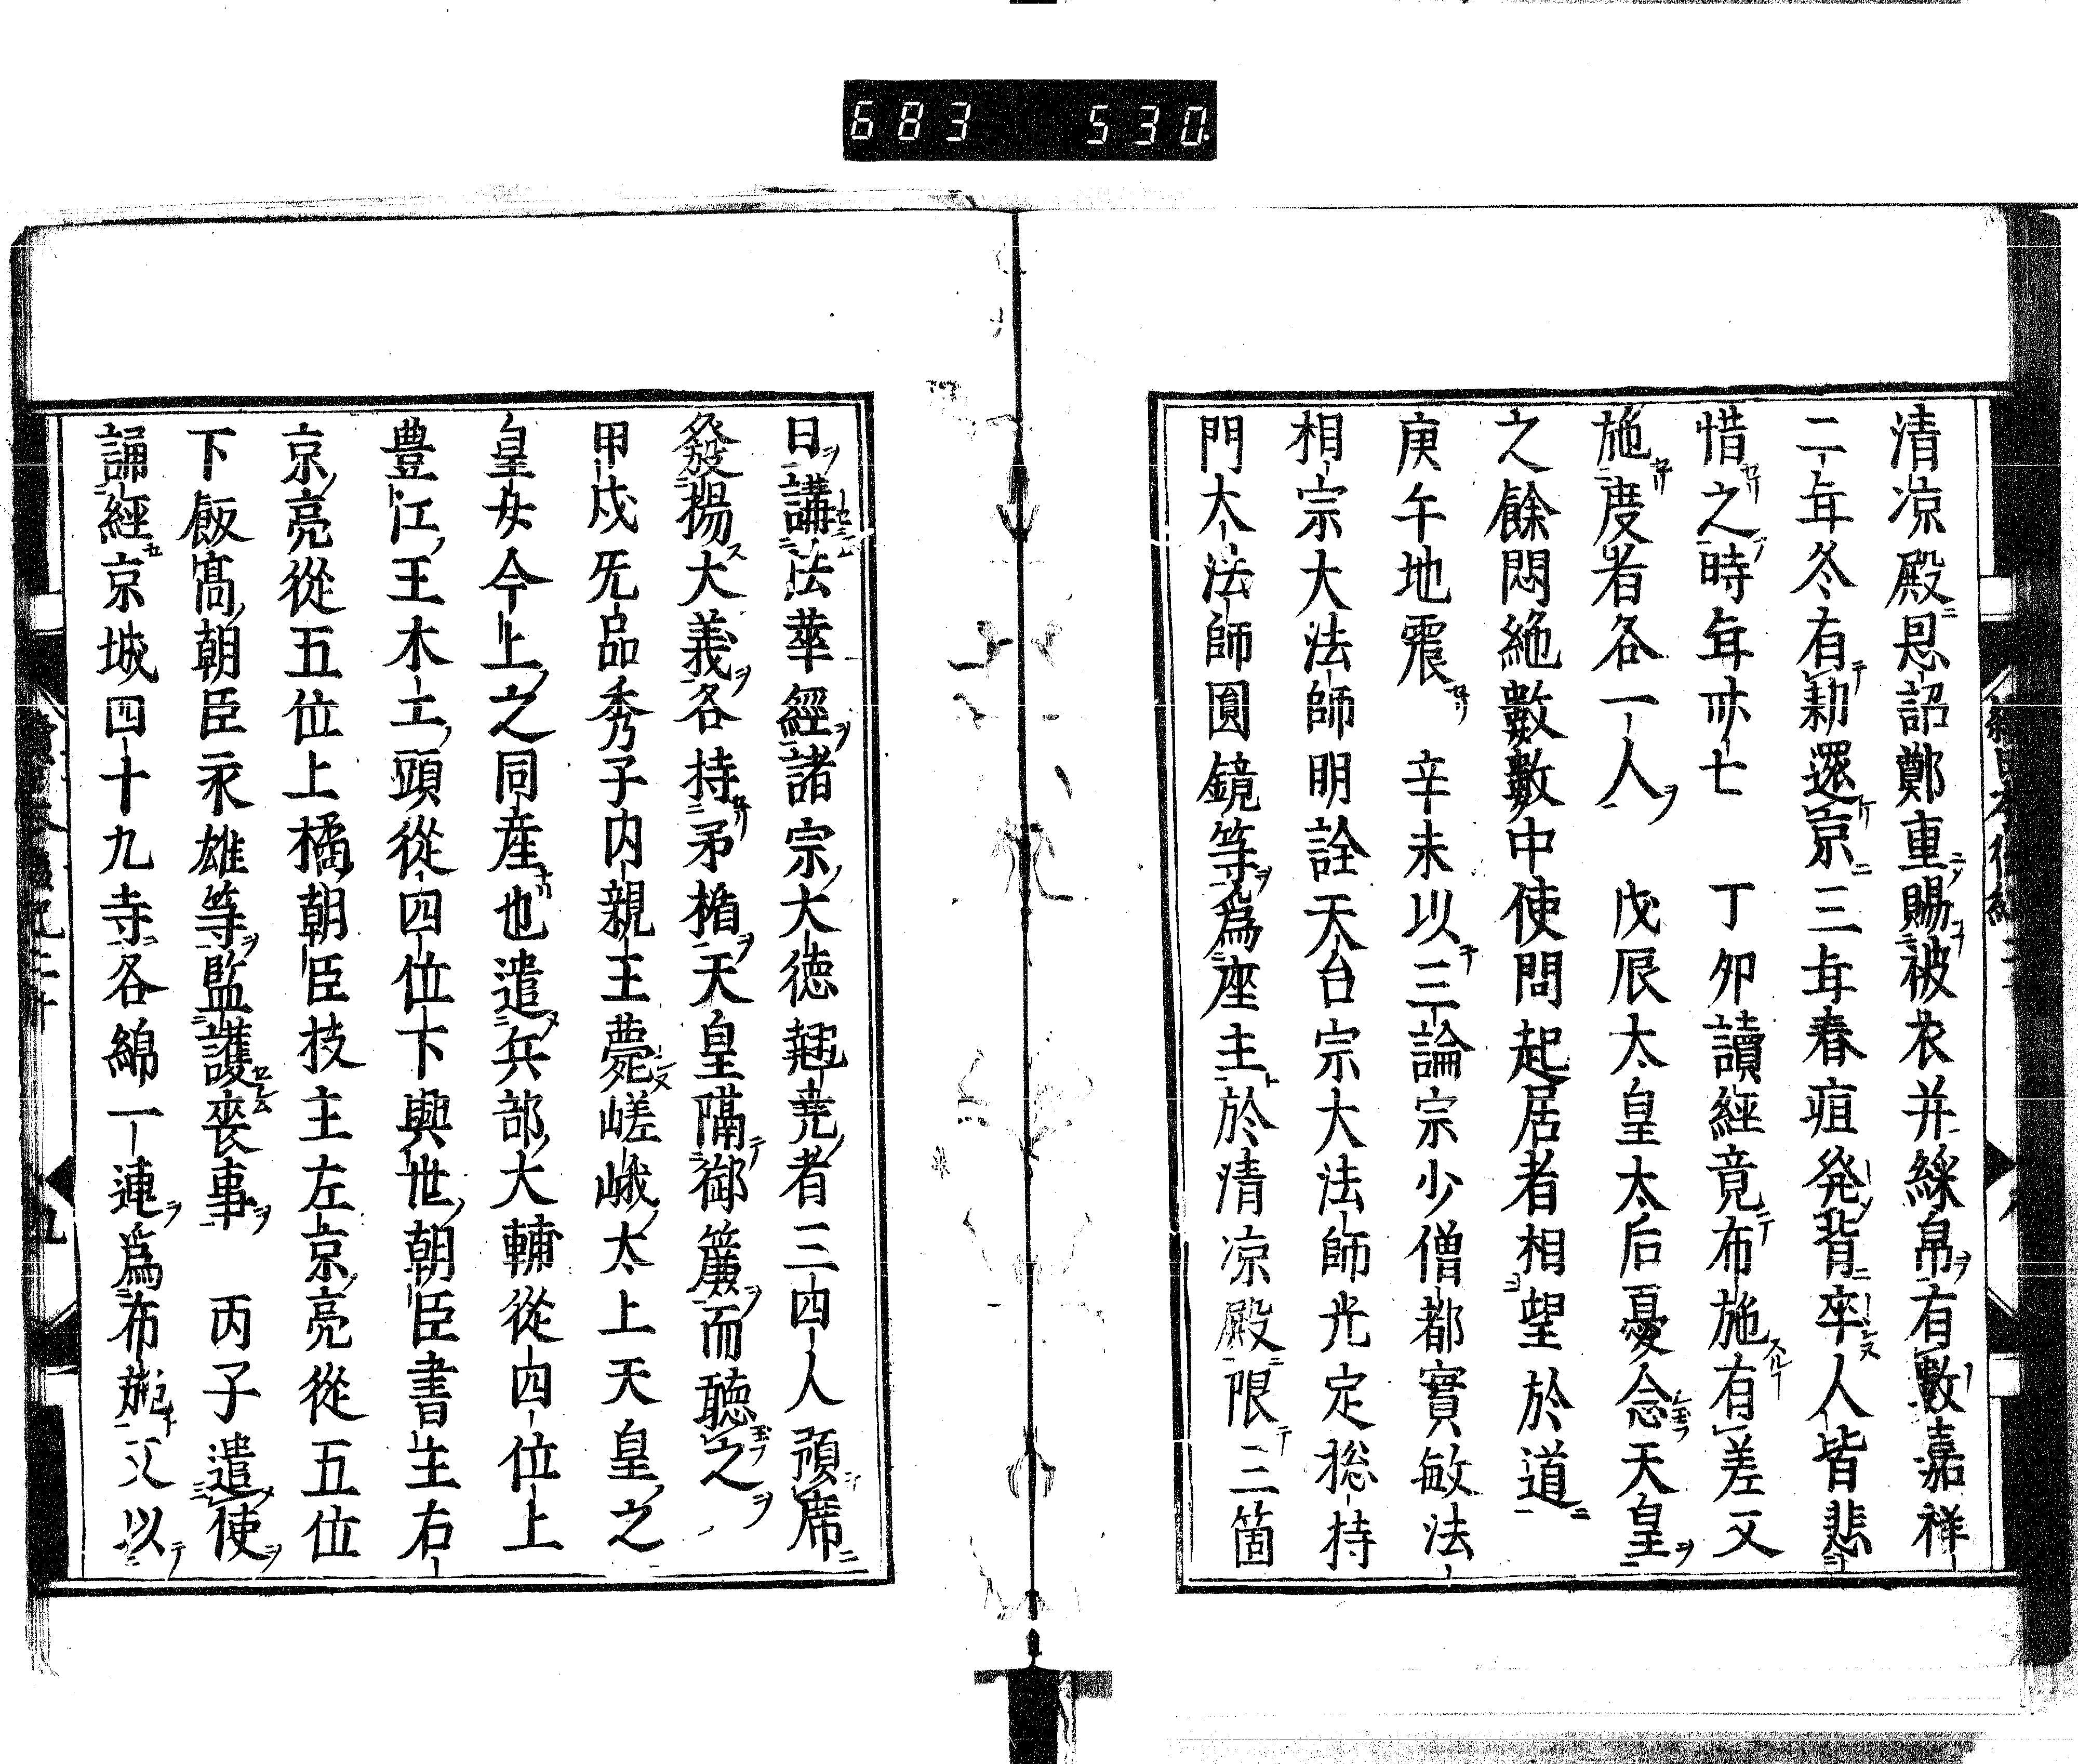 683 530
清凉殿恩詔鄭重賜被衣并綵帛有數嘉祥
二年冬有勅還京三年春疽発背卒人皆悲
惜之時年卌七　丁卯讀經竟布施有差又
施度者各一人　戊辰太皇太后憂念天皇
之餘悶絶數數中使問起居者相望於道
庚午地震　辛未以三論宗少僧都實敏法
相宗大法師明詮天台宗大法師光定捴持
門大法師圓鏡等爲座主於清凉殿限三箇
日講法華經諸宗大徳翹尭者三四人預席
發揚大義各持矛楯天皇隔御簾而聴之
甲戌旡品秀子内親王薨嵯峨太上天皇之
皇女今上之同産也遣兵部大輔從四位上
豊江王木工頭從四位下興世朝臣書主右
京亮從五位上橘朝臣枝主左京亮從五位
下飯高朝臣永雄等監護喪事　丙子遣使
誦經京城四十九寺各綿一連爲布施又以